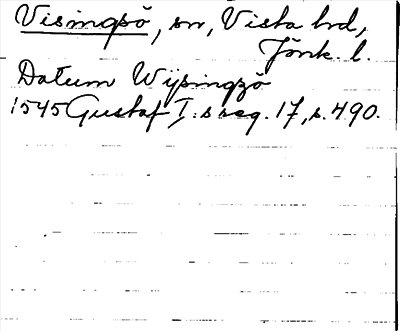 Visingsö, sn, Vista hrd,
Jönk. l.
Datum Wijsingzö
1545 Gustaf I:s reg. 17, s. 490.